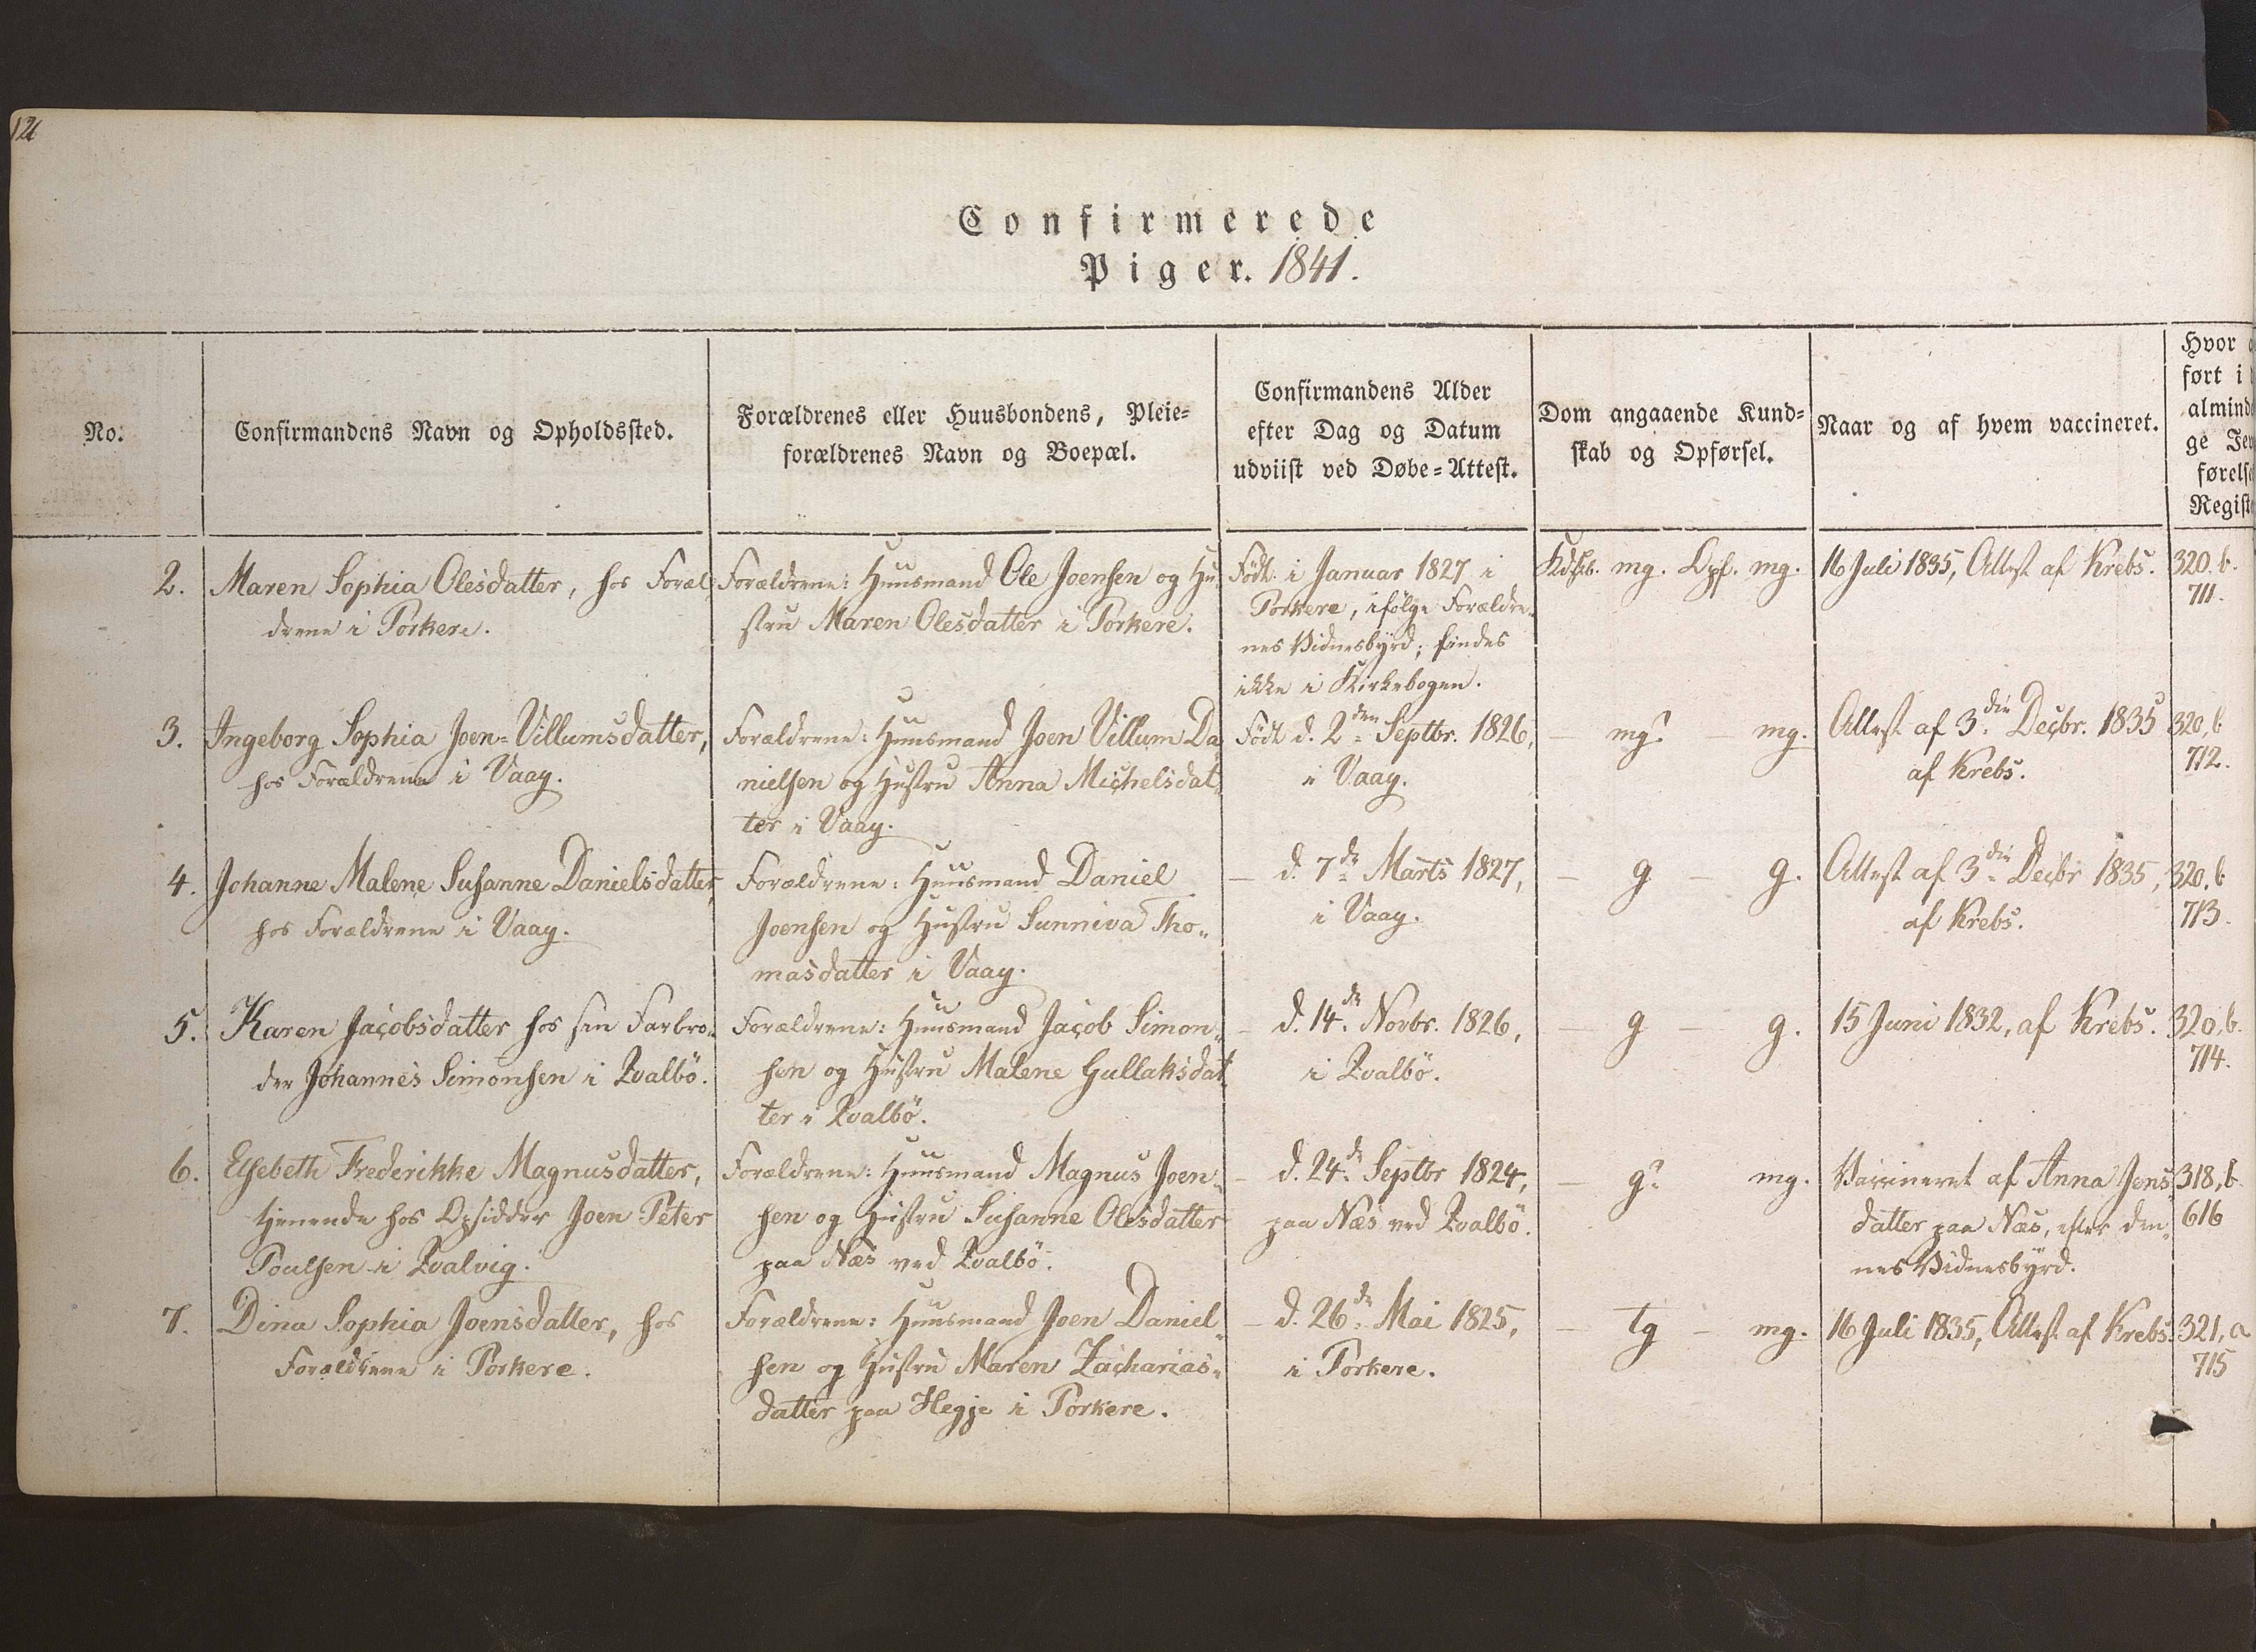 121
Confirmerede
Piger. 1841.
No.
Confirmandens Navn og Opholdssted.
Forældrenes eller Huusbondens, Pleie=
forældrenes Navn og Boepæl.
Confirmandens Alder
efter Dag og Datum
udviist ved Døbe=Attest.
Dom angaaende Kund=
skab og Opførsel.
Naar og af hvem vaccineret.
Hvor
ført i
almind
ge Je
førels
Regist
2.
Maren Sophia Olesdatter, hos Foræl
drene i Porkere.
Forældrene: Huusmand Ole Joensen og Hu-
stru Maren Olesdatter i Porkere.
Født i Januar 1827 i
Porkere, ifølge Forældre-
nes Vidnesbyrd; findes
ikke i Kirkebogen.
Kdskb. mg. Opf. mg.
16 Juli 1835, Attest af Krebs.
320.b.
711.
3.
Ingeborg Sophia Joen=Villumsdatter,
hos Forældrene i Vaag.
Forældrene: Huusmand Joen Villum Da
nielsen og Hustru Anna Michelsdat-
ter i Vaag.
Født d. 2den Septbr. 1826,
i Vaag.
— mg? — mg.
Attest af 3die Decbr. 1835
af Krebs.
320,b
712.
4.
Johanne Malene Susanne Danielsdatter,
hos Forældrene i Vaag.
Forældrene: Huusmand Daniel
Joensen og Hustru Sunniva Tho-
masdatter i Vaag.
— d. 7de Marts 1827,
i Vaag.
— g — g.
Attest af 3die Decbr 1835,
af Krebs.
320.b
713.
5.
Karen Jacobsdatter hos sin Farbro-
der Johannes Simonsen i Qvalbö.
Forældrene: Huusmand Jacob Simon-
sen og Hustru Malene Gullaksdat-
ter i Qvalbö.
— d. 14de Novbr. 1826,
i Qvalbö.
— g — g.
15 Juni 1832, af Krebs.
320,b.
714.
6.
Elsebeth Frederikke Magnusdatter,
tjenende hos Opsidder Joen Peter
Poulsen i Qvalvig.
Forældrene: Huusmand Magnus Joen-
sen og Hustru Susanne Olesdatter
paa Næs ved Qvalbö.
— d. 24de Septbr 1824,
paa Næs ved Qvalbö.
— g? mg.
Vaccineret af Anna Jens-
datter paa Næs, efter den-
nes Vidnesbyrd.
318,b.
616
7.
Dina Sophia Joensdatter, hos
Forældrene i Porkere.
Forældrene: Huusmand Joen Daniel-
sen og Hustru Maren Zacharias-
datter paa Hegje i Porkere.
— d. 26de Mai 1825,
i Porkere.
— tg — mg.
16 Juli 1835, Attest af Krebs.
321,a
715